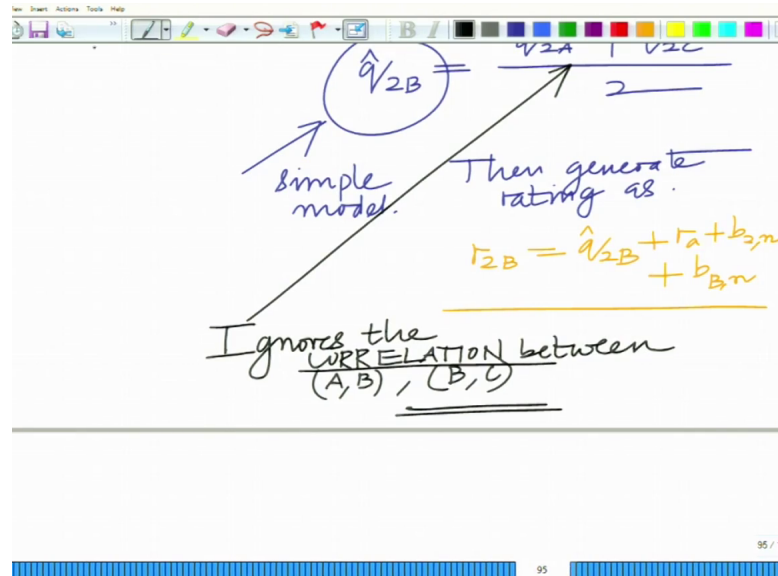 Insert Actions Tools Help
B I
q̂2B =
2
simple
model.
Then generate
rating as.
r2B = q̂2B + ra + b2,n
+ bB,n
Ignores the
CORRELATION between
(A,B), (B,C)
95 /
95